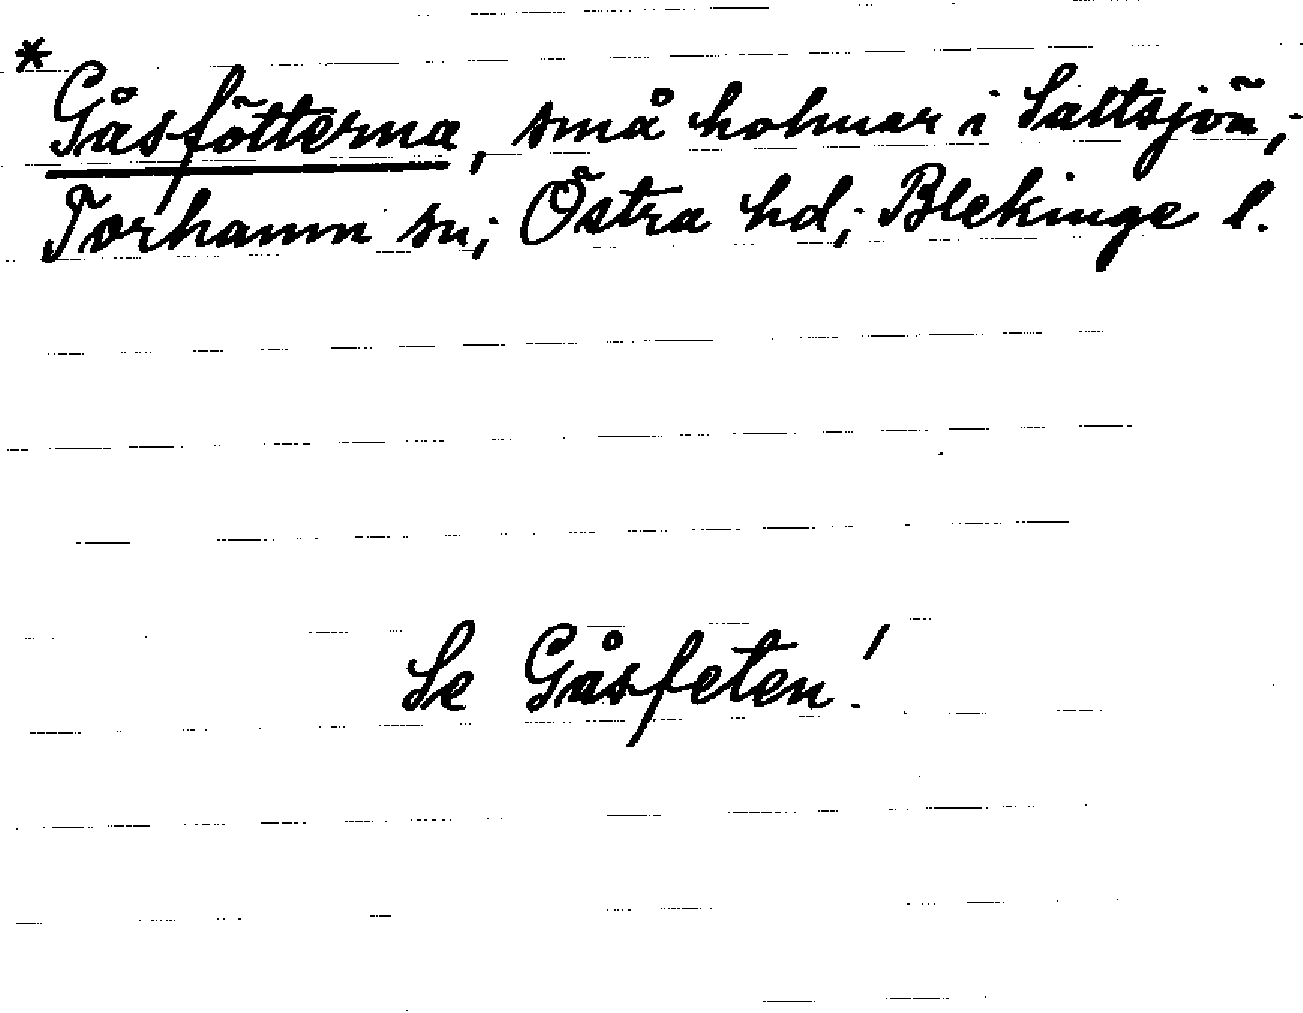 * Gåsfötterna, små holmar i Saltsjön;
Torhamn sn; Östra hd; Blekinge l.
Se Gåsfeten!